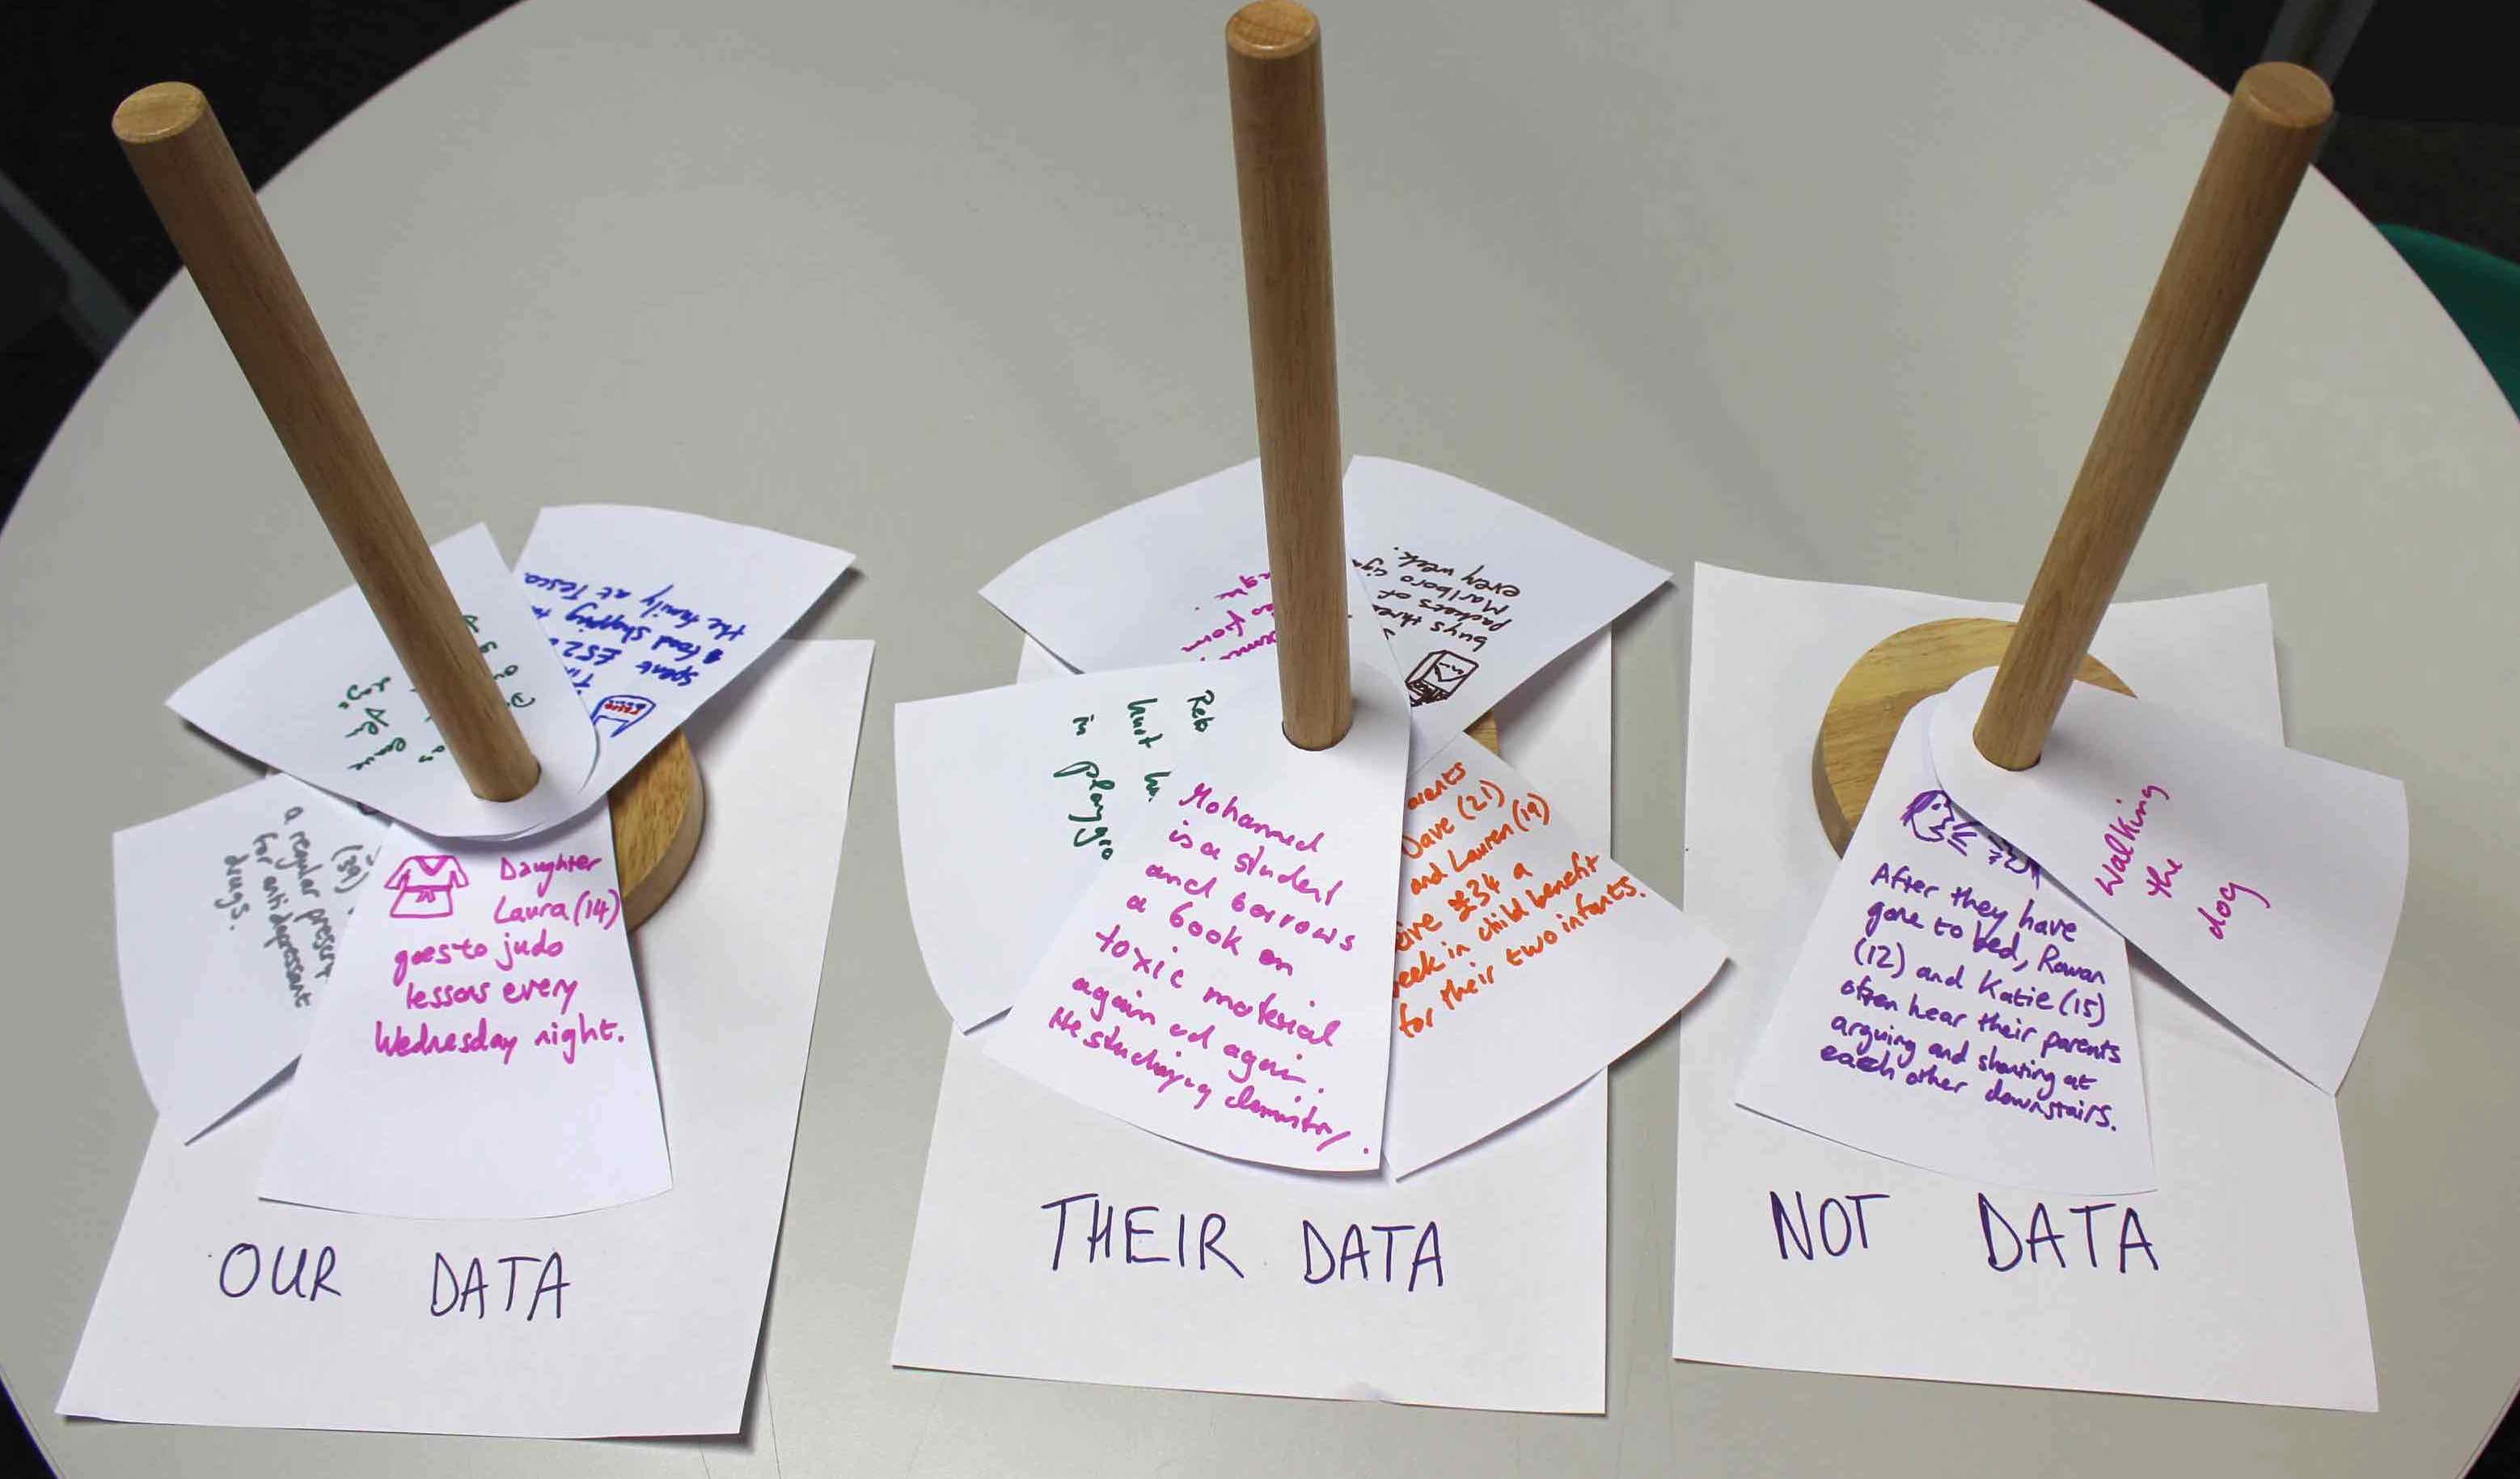 spent £52
food shopping
the family at Tesco
(39)
a regular
for anti depressant
drugs.
Daughter
Laura (14)
goes to judo
lessons every
Wednesday night.
OUR DATA
buys three
packets of
Marlboro
every week.
hurt
in
Mohammed
is a student
and borrows
a book on
toxic material
again and again.
He studying chemistry.
Dave (21)
and Lauren (19)
£34 a
in child benefit
for their two infants.
THEIR DATA
Walking
the
dog
After they have
gone to bed, Rowan
(12) and Katie (15)
often hear their parents
arguing and shouting at
each other downstairs.
NOT DATA